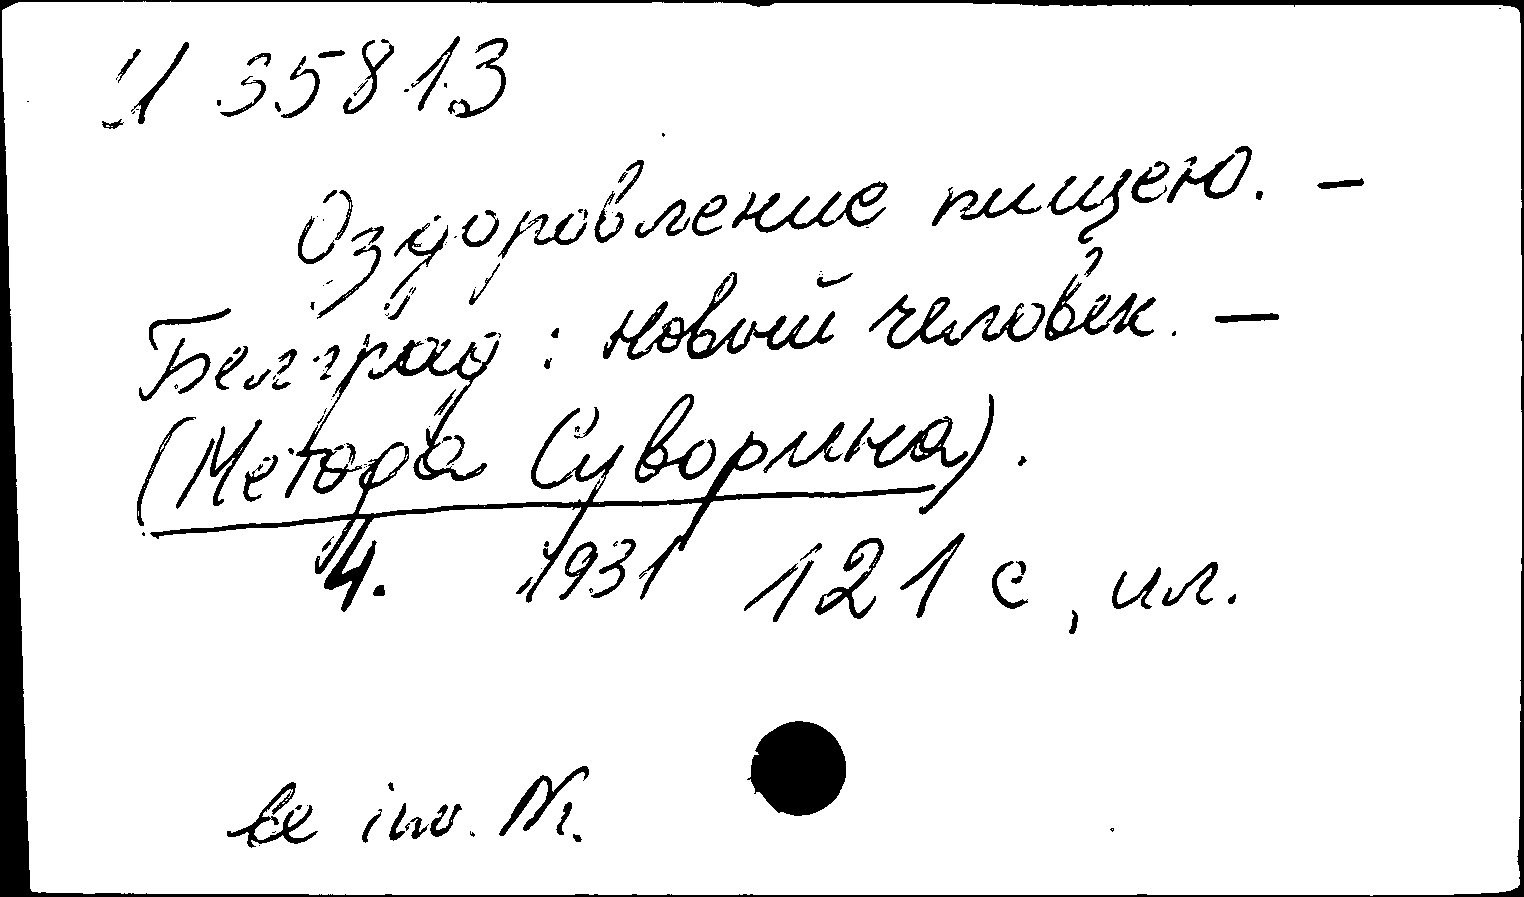 И 35813
Оздоровление пищею. —
Белград : Новый человек. —
(Метода Суворина).
4. 1931 121 с, ил.
be inv. Nr.